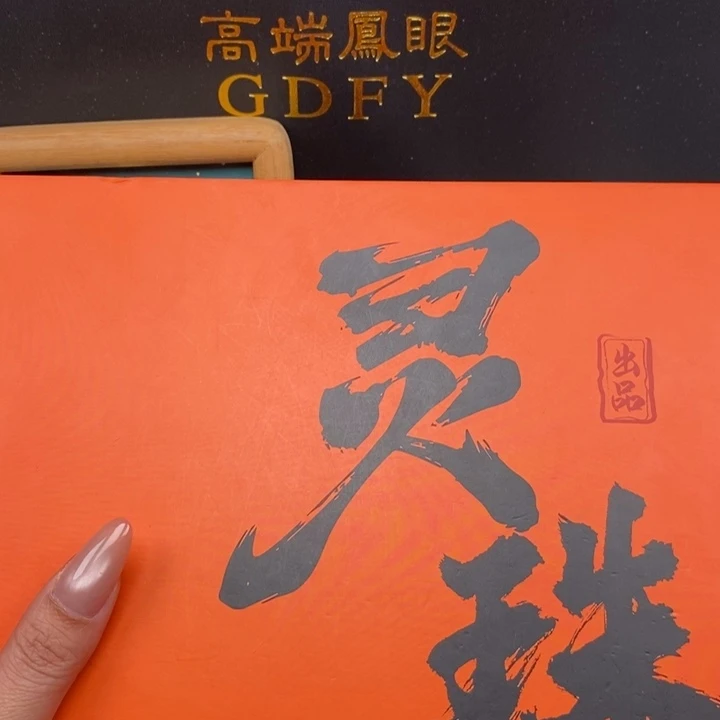 高端鳳眼
GDFY
灵珠
出品